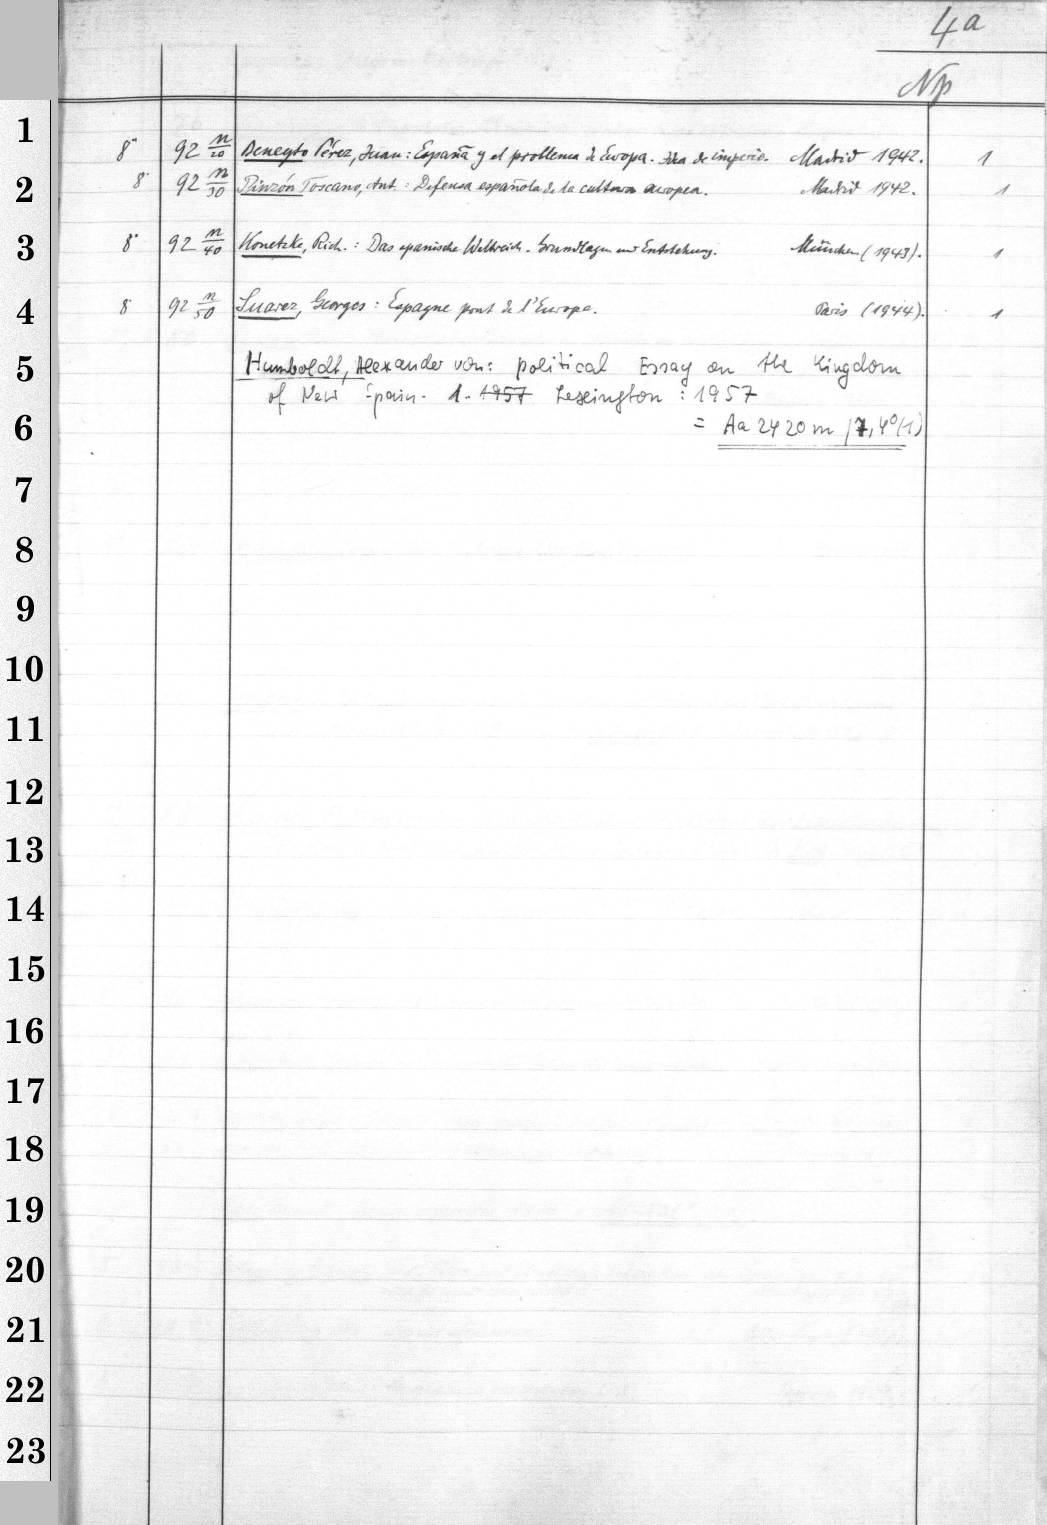 4a
Np
1
8° 92 n/20 Beneyto Pérez, Juan: España y el problema de Europa. Idea de imperio. Madrid 1942. 1
2
8° 92 n/30 Pinzón Toscano, Ant.: Defensa española de la cultura europea. Madrid 1942. 1
3
8° 92 n/40 Konetzke, Rich.: Das spanische Weltreich. Grundlagen und Entstehung. München (1943). 1
4
8° 92 n/50 Suarez, Georges: Espagne pont de l'Europe. Paris (1944). 1
5
Humboldt, Alexander von: political Essay on the Kingdom
of New Spain. 1. 1957 Lexington : 1957
6
= Aa 2420 m /7, 4°(1)
7
8
9
10
11
12
13
14
15
16
17
18
19
20
21
22
23